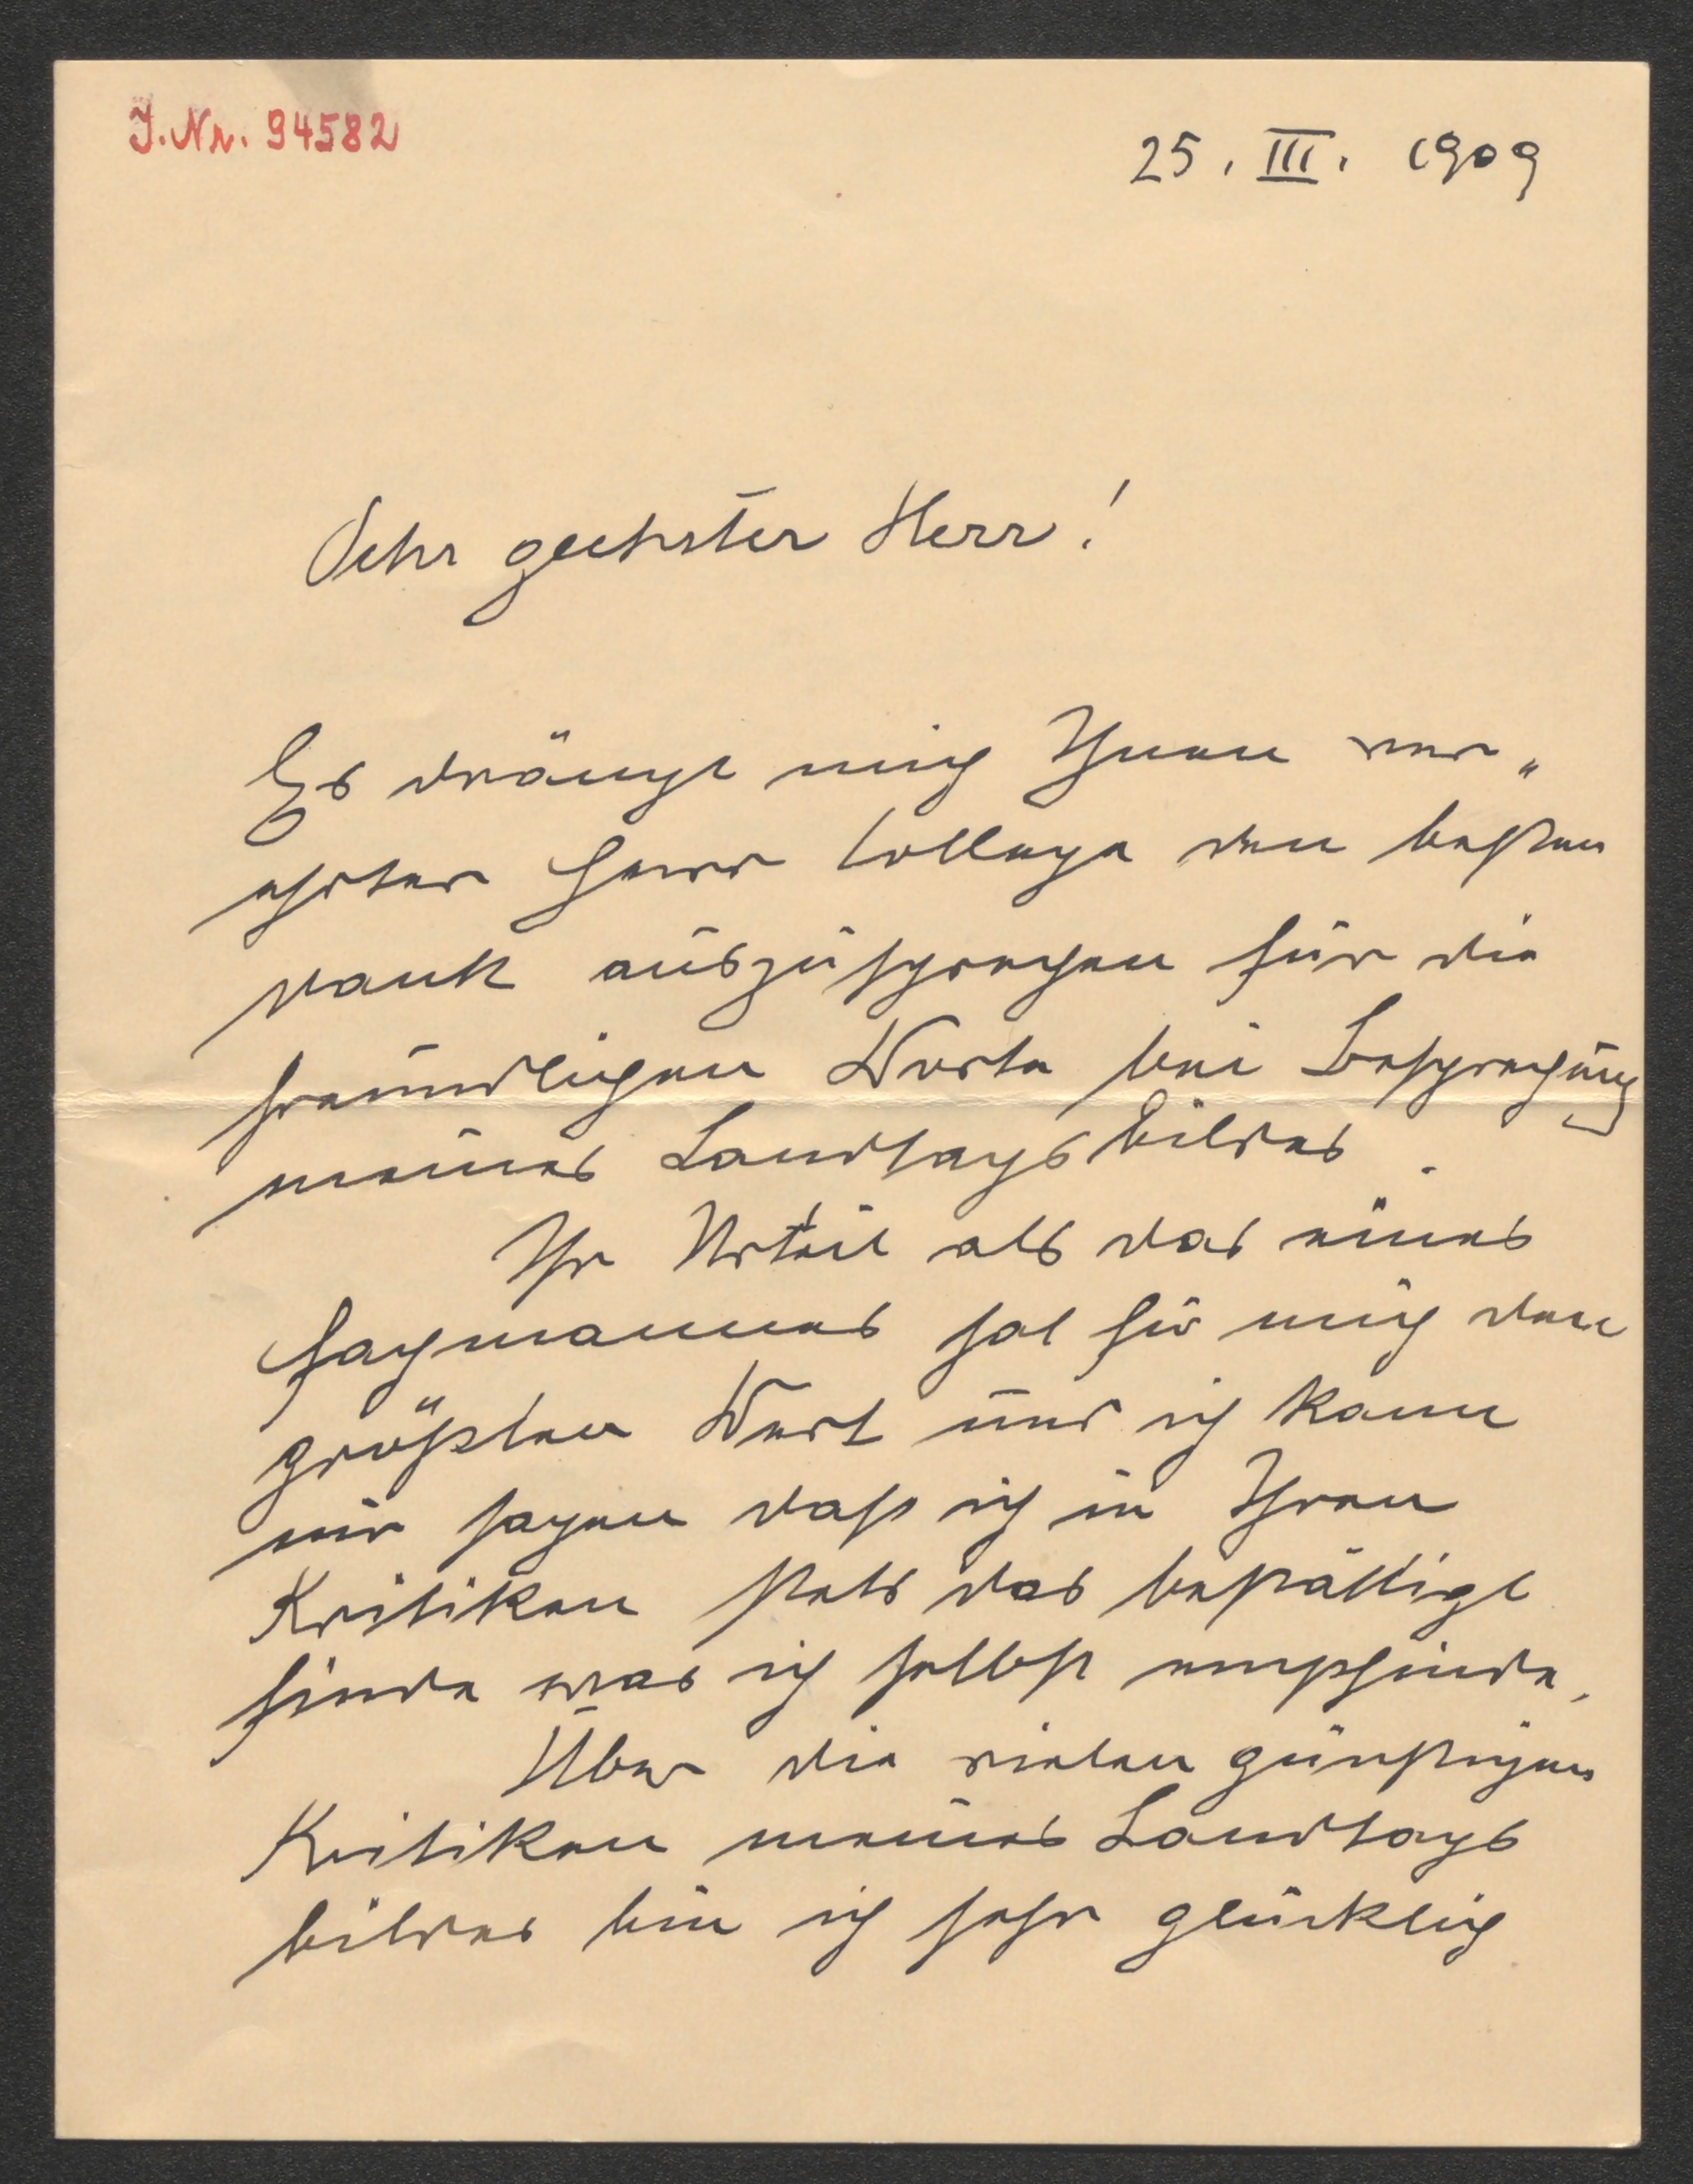 J. Nr. 94582
25. III. 1909
Sehr geehrter Herr!
Es drängt mich Ihnen ver„
ehrter Herr Collega den besten
dank auszusprechen für die
freundlichen Worte bei Besprechung
meines Landtagsbildes.
Ihr Urteil als das eines
Fachmannes hat für mich den
größten Wert und ich kann
nur sagen daß ich in Ihren
Kritiken stets das bestättigt
finde was ich selbst empfinde.
Über die vielen günstigen
Kritiken meines Landtags
bildes bin ich sehr glücklich